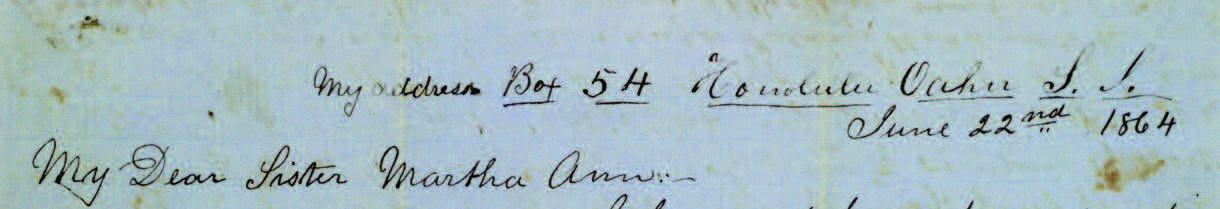 My address Box 54 Honolulu Oahu S. I.
June 22nd 1864
My Dear Sister Martha Ann:—